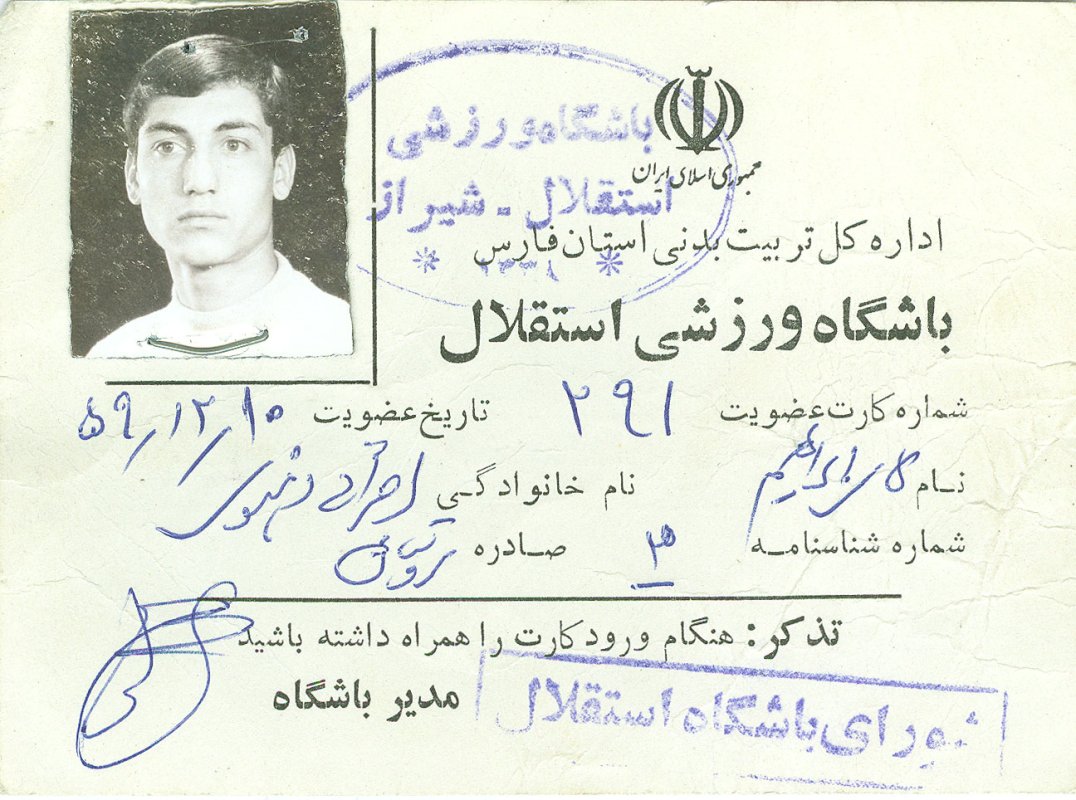 باشگاه ورزشی
استقلال - شیراز
جمهوری اسلامی ایران
اداره کل تربیت بدنی استان فارس
باشگاه ورزشی استقلال
شماره کارت عضویت ۲۹۱ تاریخ عضویت ۵۹/۱۲/۱۰
نام نام خانوادگی
شماره شناسنامه ۳ صادره
تذکر: هنگام ورود کارت را همراه داشته باشید
مدیر باشگاه
شورای باشگاه استقلال